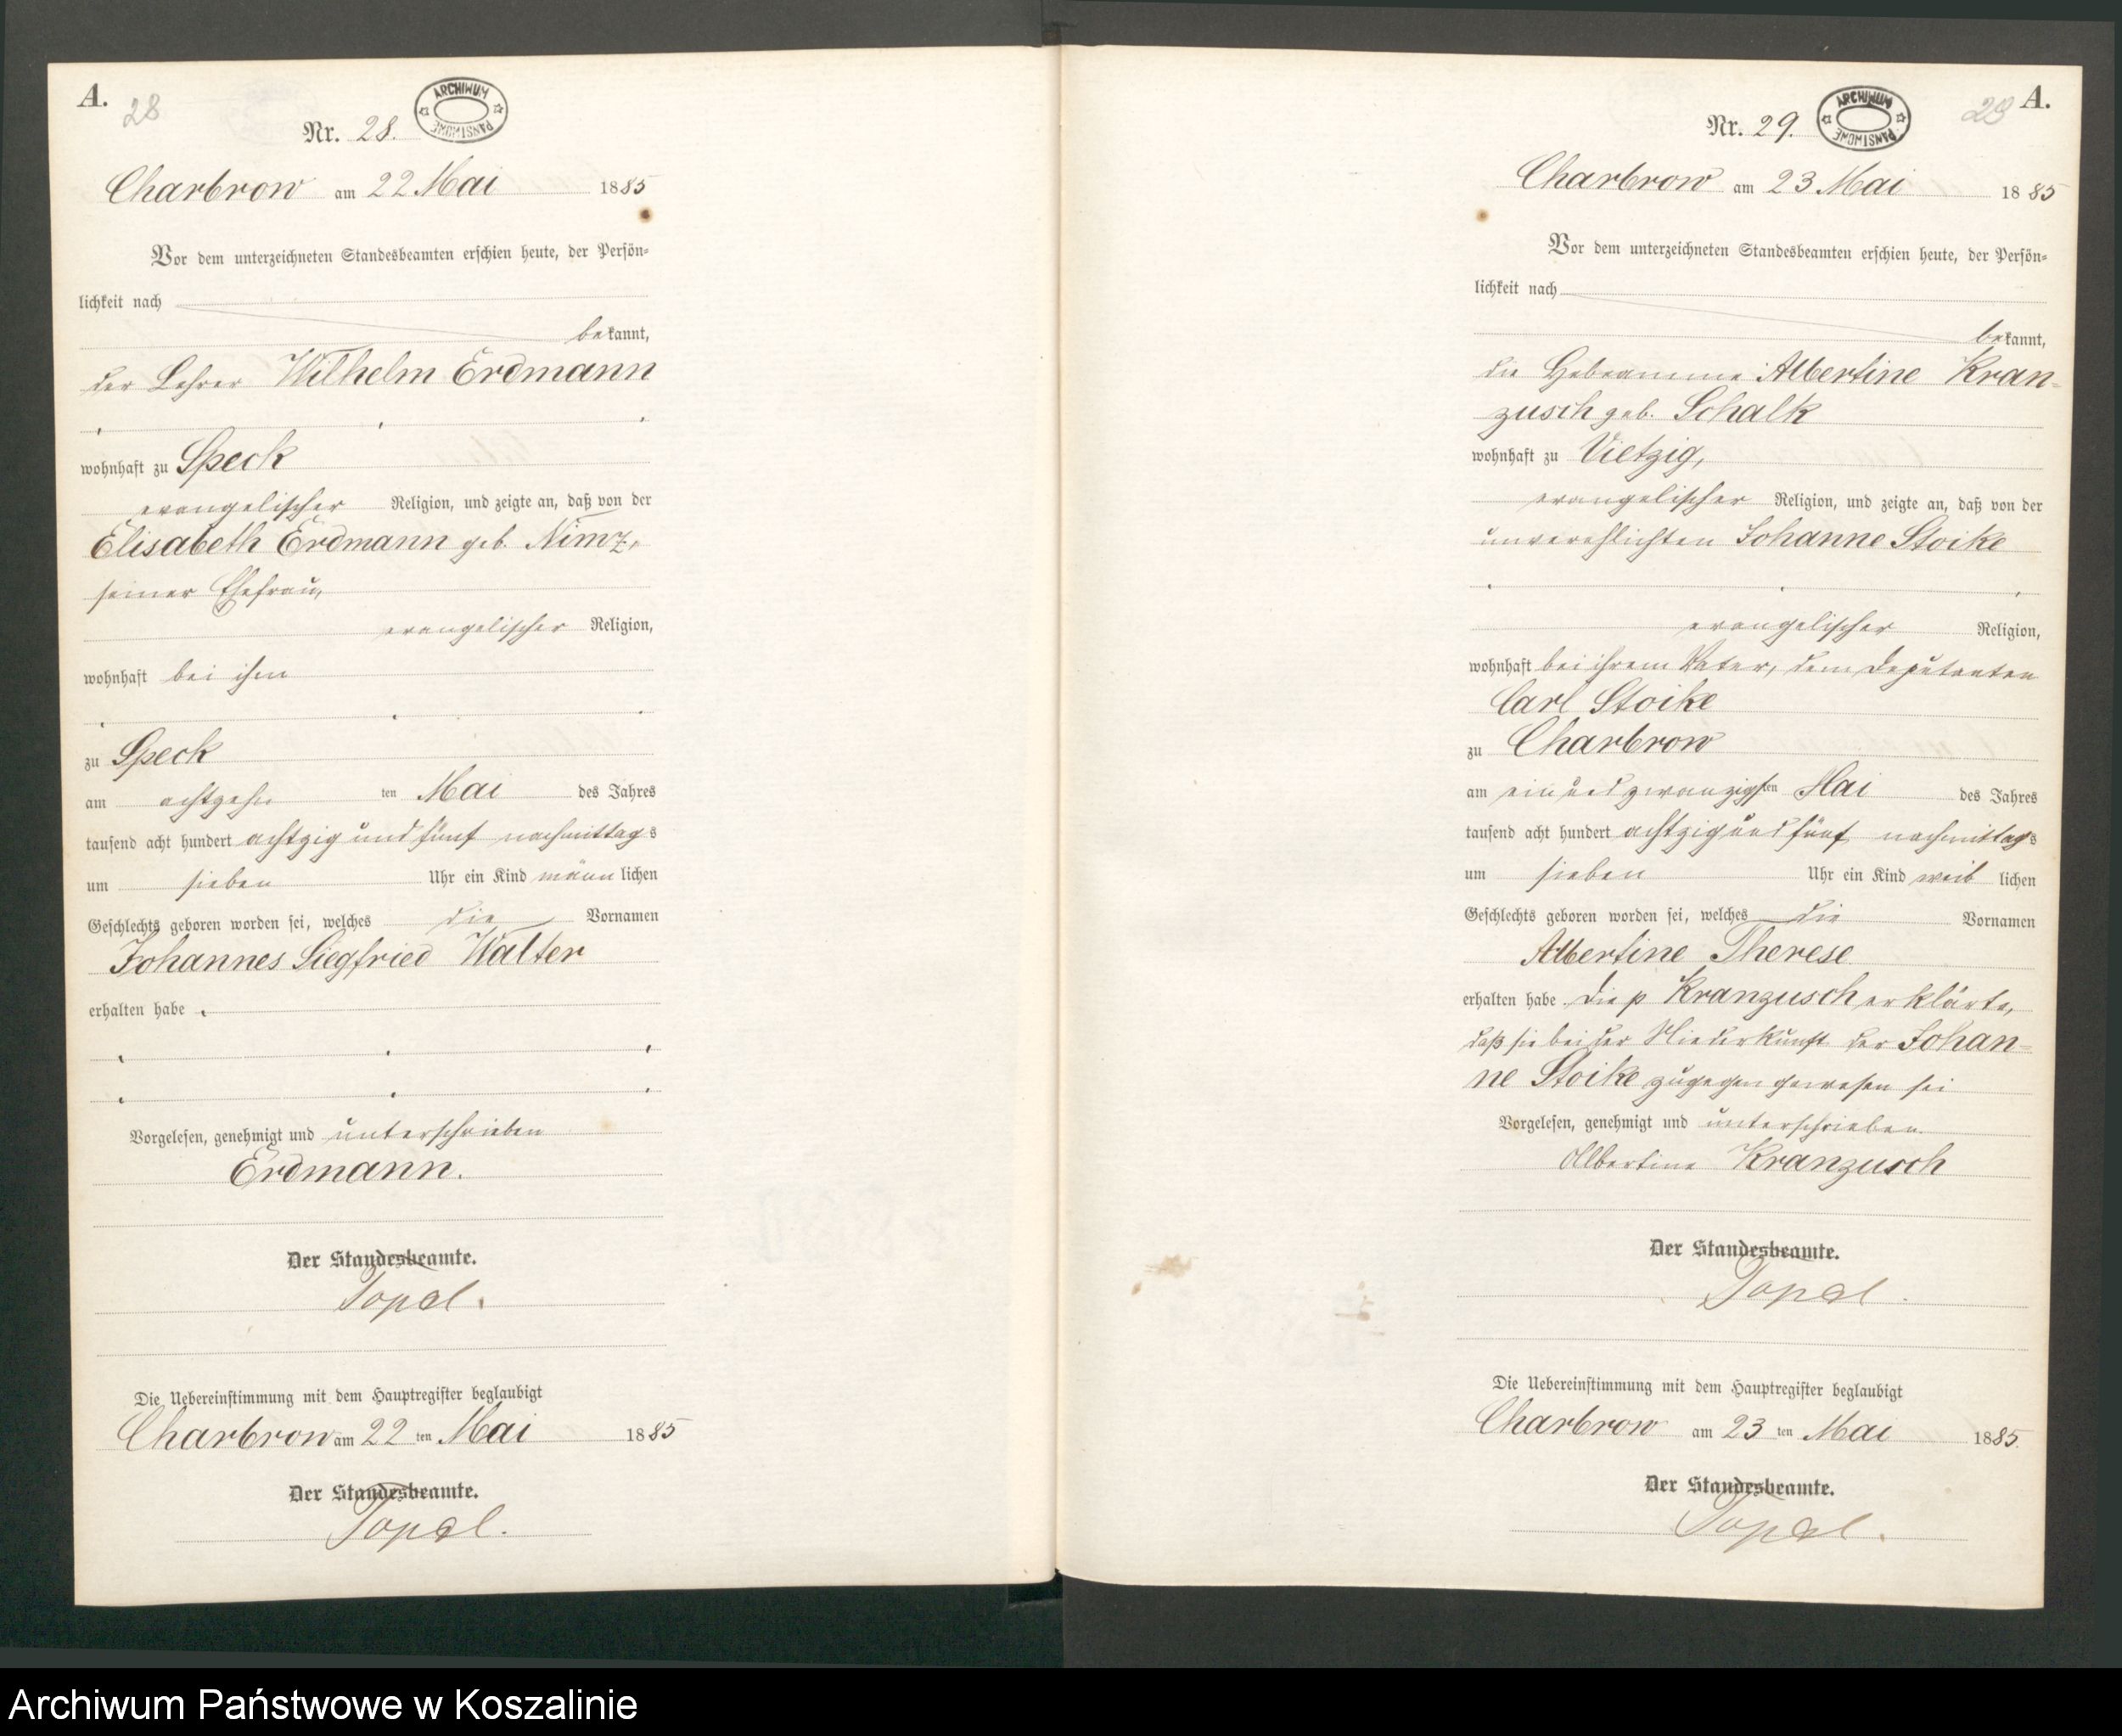 A.
28
ARCHIWUM PAŃSTWOWE
Nr. 28.
Charbrow am 22 Mai 1885
Vor dem unterzeichneten Standesbeamten erschien heute, der Persön-
lichkeit nach
bekannt,
der Lehrer Wilhelm Erdmann
wohnhaft zu Speck
evangelischer Religion, und zeigte an, daß von der
Elisabeth Erdmann geb. Nimz,
seiner Ehefrau,
evangelischer Religion,
wohnhaft bei ihm
zu Speck
am achtzehn ten Mai des Jahres
tausend acht hundert achtzig und fünf nachmittags
um sieben Uhr ein Kind männlichen
Geschlechts geboren worden sei, welches die Vornamen
Johannes Siegfried Walter
erhalten habe
Vorgelesen, genehmigt und unterschrieben
Erdmann.
Der Standesbeamte.
Topel.
Die Uebereinstimmung mit dem Hauptregister beglaubigt
Charbrow am 22 ten Mai 1885
Der Standesbeamte.
Topel.
A.
29
ARCHIWUM PAŃSTWOWE
Nr. 29.
Charbrow am 23 Mai 1885
Vor dem unterzeichneten Standesbeamten erschien heute, der Persön-
lichkeit nach
bekannt,
die Hebeamme Albertine Kran-
zusch geb. Schalk
wohnhaft zu Vietzig,
evangelischer Religion, und zeigte an, daß von der
unverehlichten Johanne Stoike
evangelischer Religion,
wohnhaft bei ihrem Vater, dem Deputanten
Carl Stoike
zu Charbrow
am ein und zwanzigsten Mai des Jahres
tausend acht hundert achtzig und fünf nachmittags
um sieben Uhr ein Kind weiblichen
Geschlechts geboren worden sei, welches die Vornamen
Albertine Therese
erhalten habe. Die p Kranzusch erklärte,
daß sie bei der Niederkunft der Johan-
ne Stoike zugegen gewesen sei
Vorgelesen, genehmigt und unterschrieben.
Albertine Kranzusch
Der Standesbeamte.
Topel.
Die Uebereinstimmung mit dem Hauptregister beglaubigt
Charbrow am 23 ten Mai 1885.
Der Standesbeamte.
Topel.
Archiwum Państwowe w Koszalinie